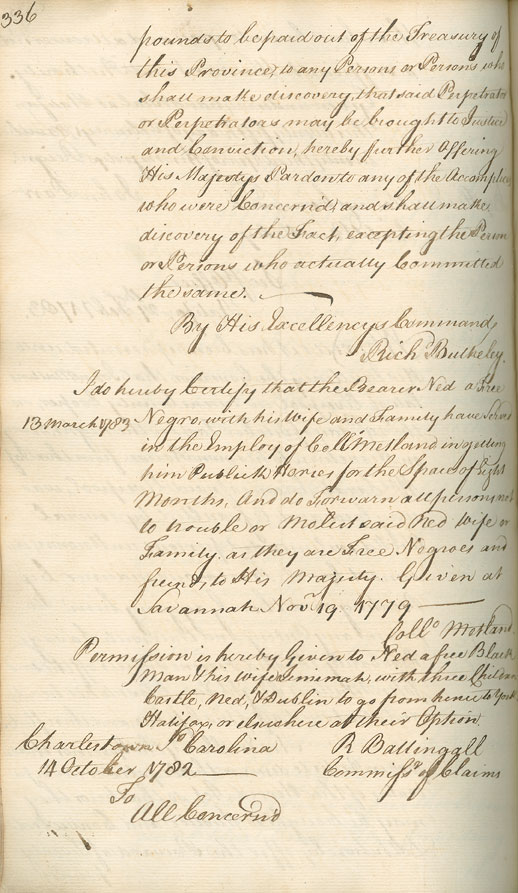 336
pounds to be paid out of the Treasury of
this Province, to any Persons or Persons who
shall make discovery, that said Perpetrator
or Perpetrators may be brought to Justice
and Conviction, hereby further Offering
His Majestys Pardon to any of the Accomplices
who were Concern'd, and shall make
discovery of the Fact, excepting the Person
or Persons who actually Committed
the same.
By His Excellencys Command,
Richd Bulkeley.
I do hereby Certify that the Bearer Ned a Free
13 March 1783 Negro, with his Wife and Family have Served
in the Employ of Coll Metland in getting
him Publick Horses for the Space of Eight
Months, And do Forwarn all persons not
to trouble or Molest said Ned Wife or
Family. as they are Free Negroes and
friends, to His Majesty. Given at
Savannah Novr 19 1779
Collo Metland.
Permission is hereby Given to Ned a free Black
Man & his Wife Jemimah, with three Children
Castle, Ned, & Dublin to go from hence to York
Halifax, or elsewhere at their Option.
Charlestown So Carolina R Ballingall
14 October 1782 Commissr of Claims
To
All Concern'd